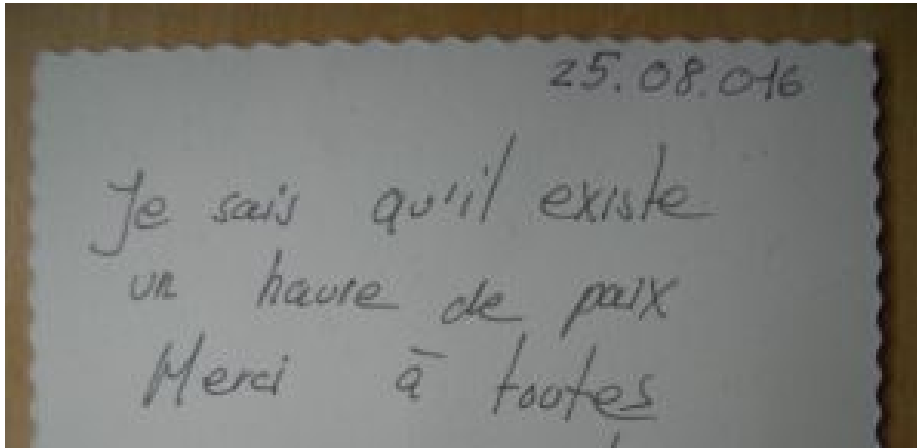 25.08.016
Je sais qu'il existe
un havre de paix
Merci à toutes